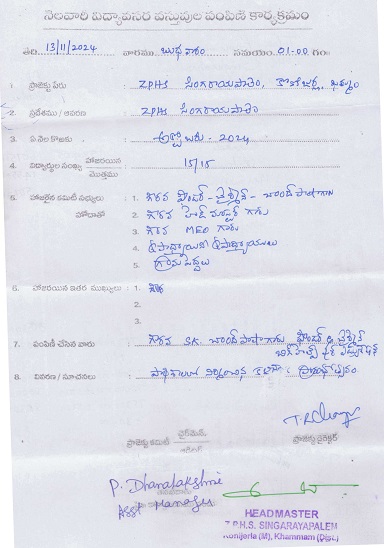 నెలవారి విద్యావసర వస్తువుల పంపిణి కార్యక్రమం
తేది 13/11/2024 వారము బుధవారం సమయం 01:00 గం
1. ప్రాజెక్టు పేరు ZPHS సింగరాయపాలెం, కొణిజర్ల, ఖమ్మం
2. ప్రదేశము / ఆవరణ ZPHS సింగరాయపాలెం
3. ఏ నెల కొరకు అక్టోబరు - 2024
4. విద్యార్థుల సంఖ్య హాజరయిన మొత్తము 15/15
5. హాజరైన కమిటీ సభ్యులు హోదాతో 1. గౌరవ ఫౌండర్ - చైర్మైన్ - చాంద్ పాషా గారు
2. గౌరవ హెడ్ మాస్టర్ గారు
3. గౌరవ MEO గారు
4. ఉపాధ్యాయిని ఉపాధ్యాయులు
5. గ్రామ పెద్దలు
6. హాజరయిన ఇతర ముఖ్యులు : 1.
2.
3.
7. పంపిణీ చేసిన వారు గౌరవ SK. చాంద్ పాషా గారు ఫౌండర్ & చైర్మైన్
8. వివరణ / సూచనలు
ప్రాజెక్టు కమిటీ చైర్మన్
ప్రాజెక్టు డైరెక్టర్
P. Dhanalakshmi
Asst Manager
HEADMASTER
Z.P.H.S. SINGARAYAPALEM
Konijerla (M), Khammam (Dist.)